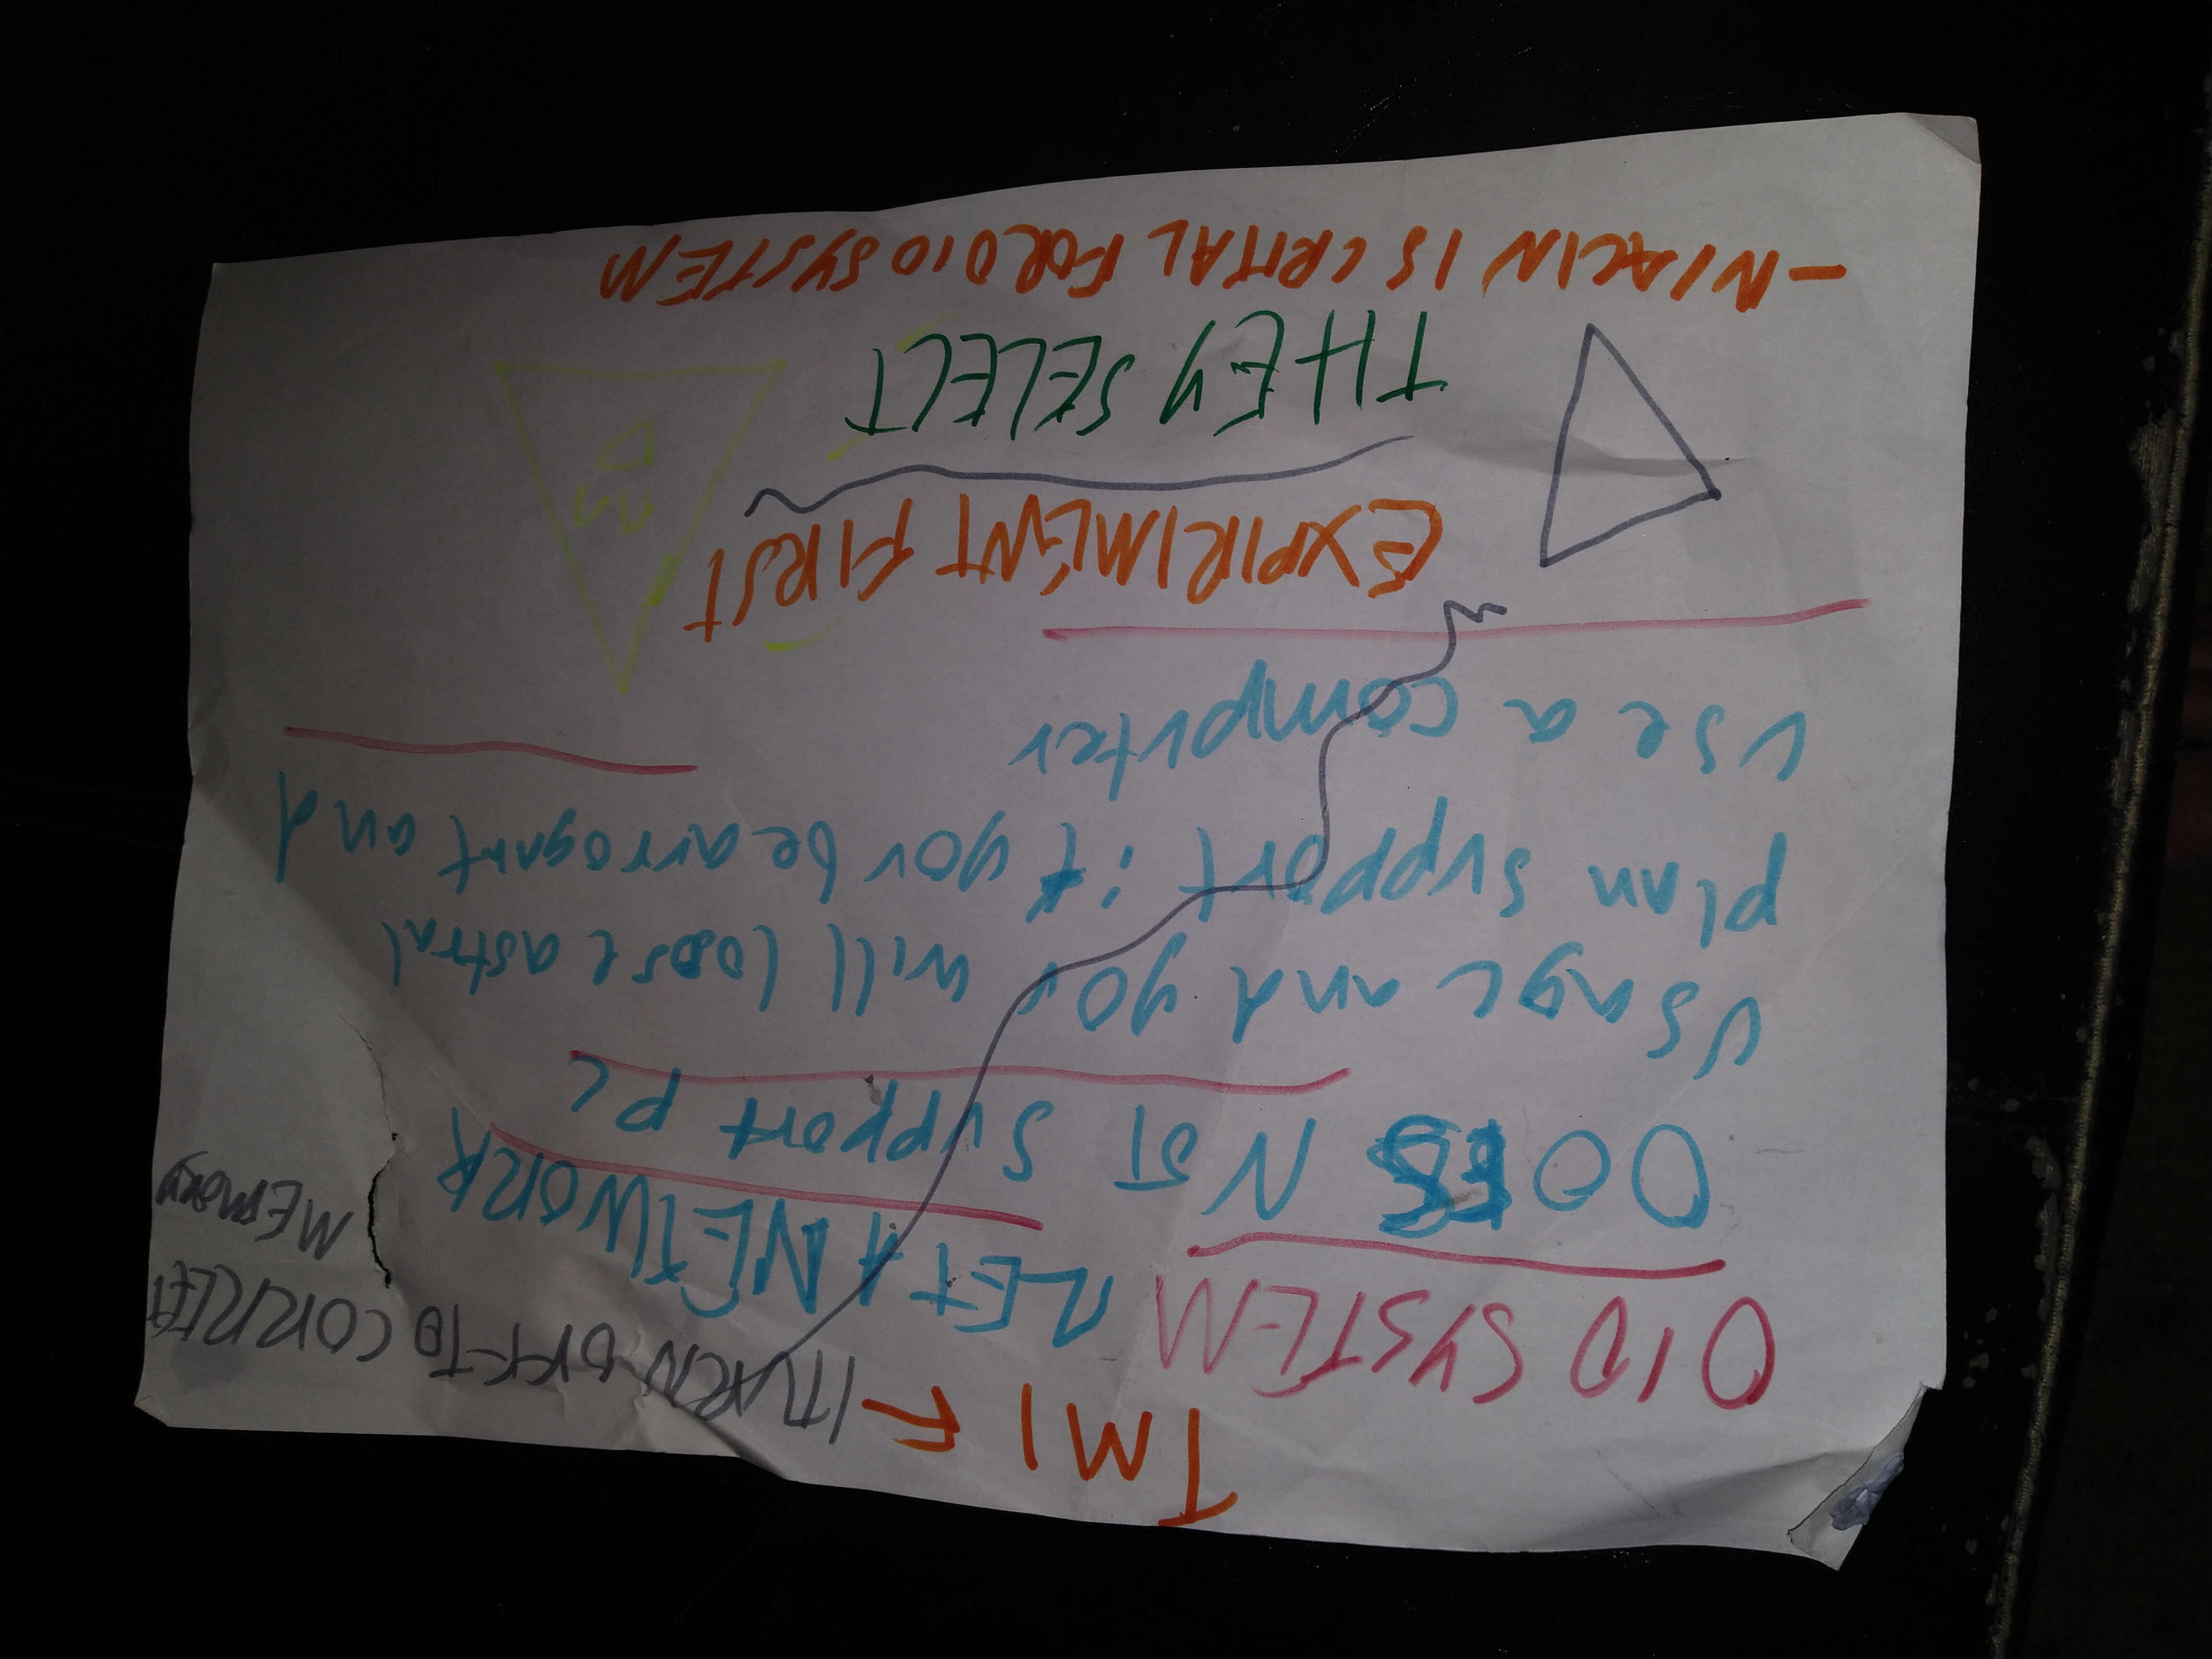 TMI F
ITURN OFF TO CORRLECT
MEMORY
OID SYSTEM
LET A NETWORK
DOES NOT Support pc
usage and you will loose astral
plan support if you be arrogant and
use a computer
EXPIRIMENT FIRST
THEY SELECT
-NIACIN IS CRITAL FOR OIO SYSTEM